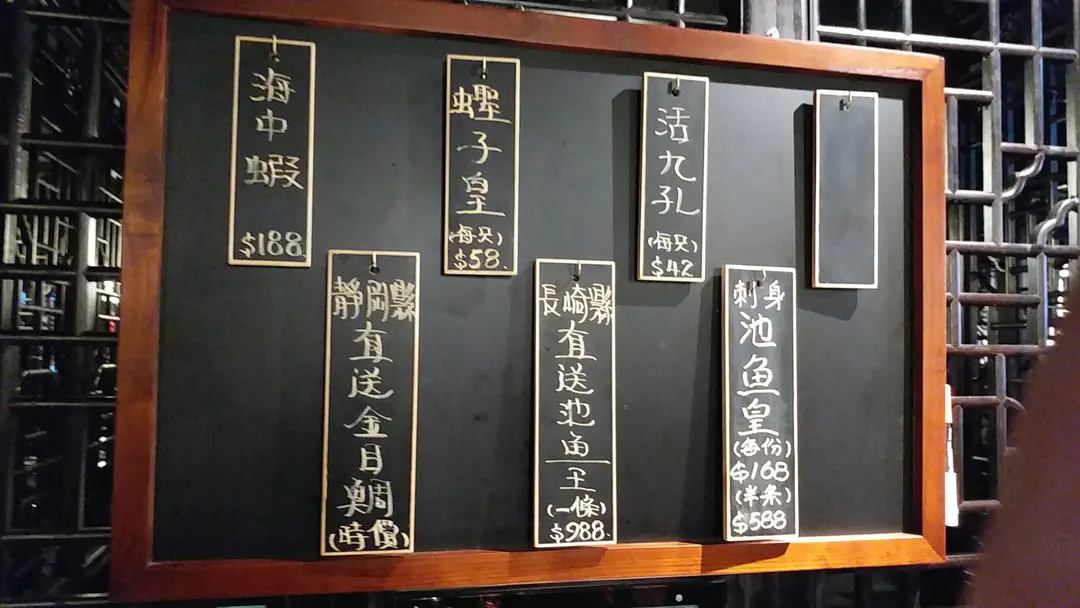 海中蝦
$188
蟶子皇
(每只)
$58.
活九孔
(每只)
$42
靜岡縣
直送金目鯛
(時價)
長崎縣
直送池魚王
(一條)
$988.
刺身
池魚皇
(每份)
$168
(半条)
$588